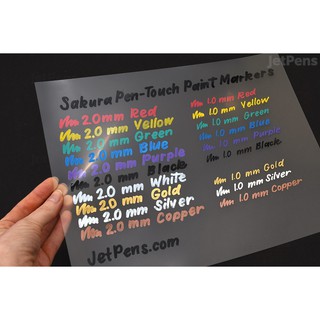 JetPens
Sakura Pen-Touch Paint Markers
2.0 mm Red
2.0 mm Yellow
2.0 mm Green
2.0 mm Blue
2.0 mm Purple
2.0 mm Black
2.0 mm White
2.0 mm Gold
2.0 mm Silver
2.0 mm Copper
1.0 mm Red
1.0 mm Yellow
1.0 mm Green
1.0 mm Blue
1.0 mm Purple
1.0 mm Black
1.0 mm Gold
1.0 mm Silver
1.0 mm Copper
JetPens.com